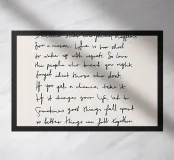 for a reason. Life is too short
to wake up with regrets. So love
the people who treat you right
forget about those who dont.
If you get a chance, take it
If it changes your life, let it
Sometimes good things fall apart
so better things can fall together